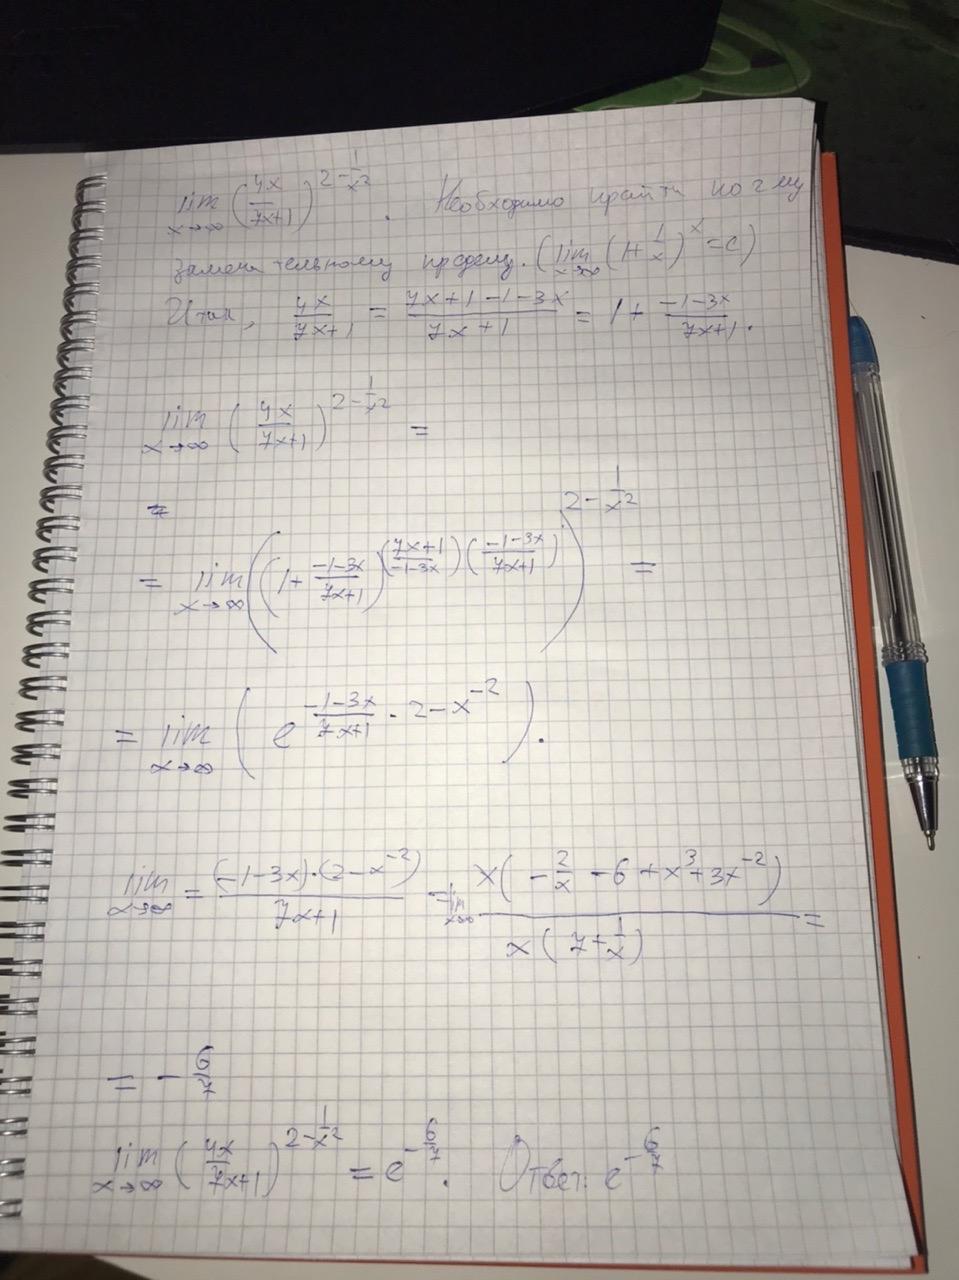 lim x→∞ (4x/(7x+1))^(2-1/x²). Необходимо прийти ко 2 му
замечательному пределу. (lim x→∞ (1+1/x)^x = e)
Итак, 4x/(7x+1) = (7x+1-1-3x)/(7x+1) = 1+(-1-3x)/(7x+1).
lim x→∞ (4x/(7x+1))^(2-1/x²) =
=
= lim x→∞ ((1+(-1-3x)/(7x+1))^((7x+1)/(-1-3x))((-1-3x)/(7x+1)))^(2-1/x²) =
= lim x→∞ (e^((-1-3x)/(7x+1) · 2-x^-2)).
lim x→∞ = ((-1-3x)·(2-x^-2))/(7x+1) = lim x→∞ x(-2/x-6+x^3+3x^-2)/(x(7+1/x)) =
= -6/7
lim x→∞ (4x/(7x+1))^(2-1/x²) = e^(-6/7). Ответ: e^(-6/7)